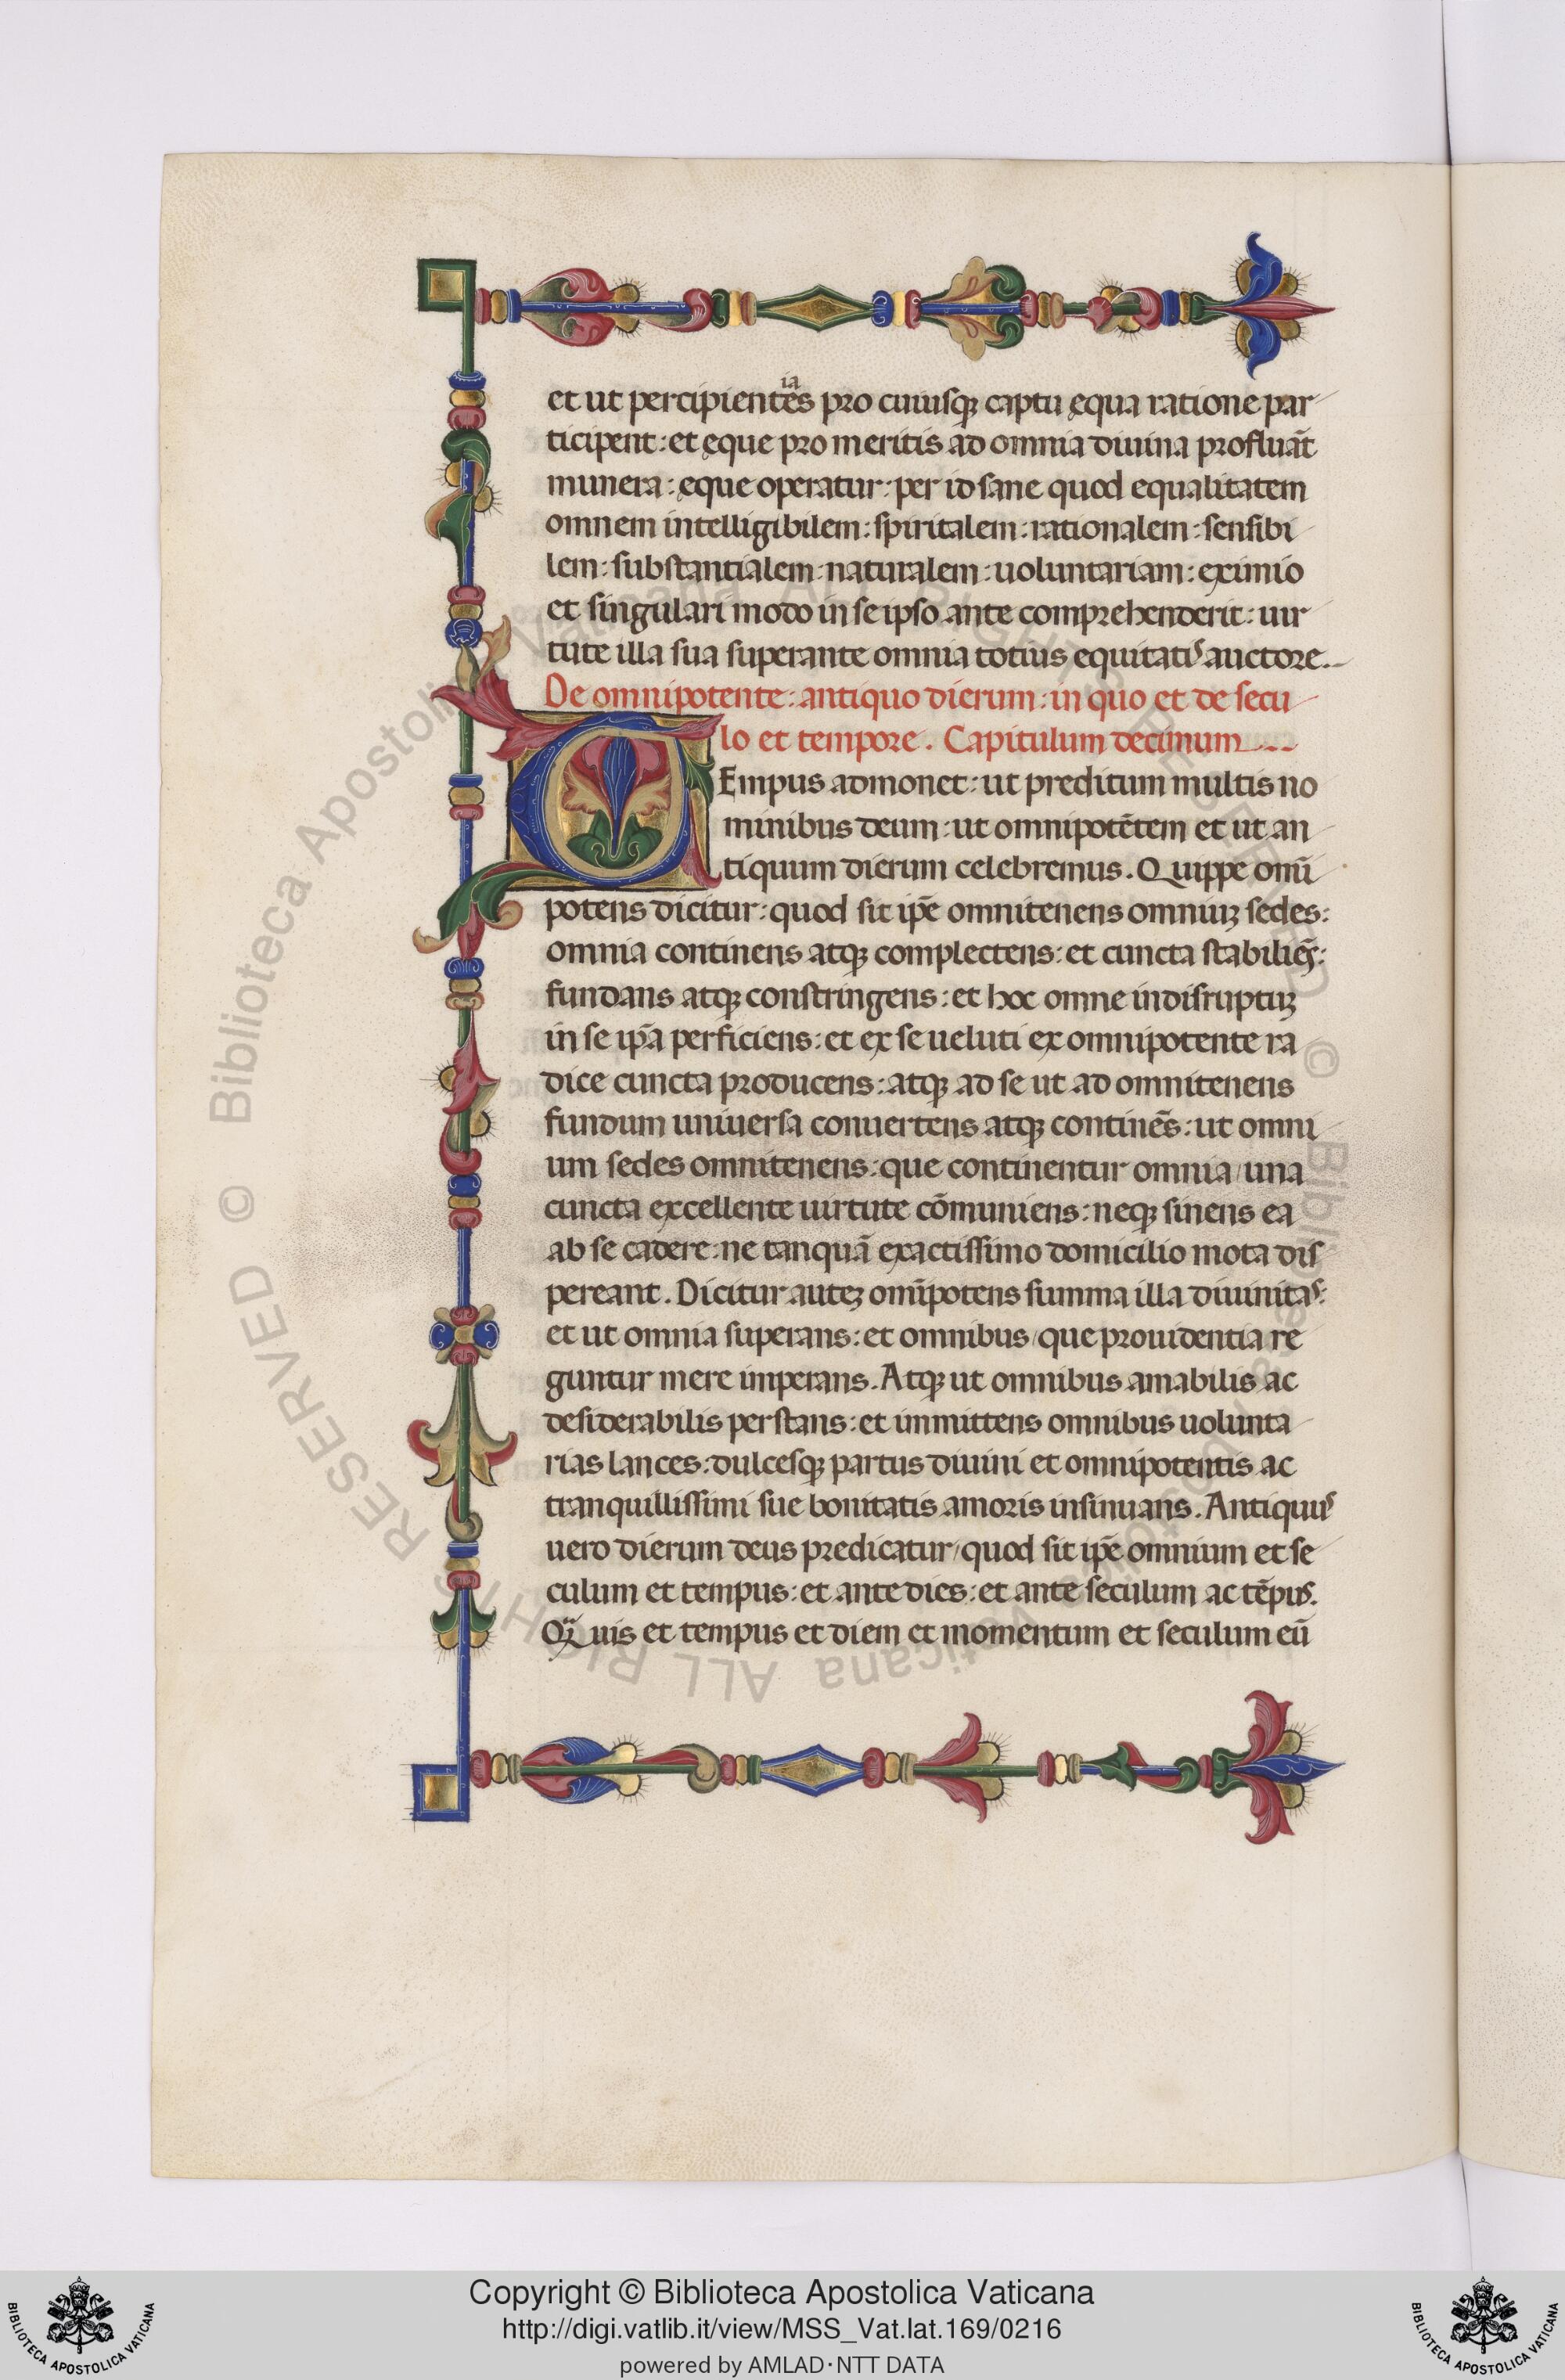 et ut percipientes pro cuiusqꝫ captu ęqua ratione par
ia
ticipent: et ęque pro meritis ad omnia diuina profluāt
munera: ęque operatur: per id sane quod equalitatem
omnem intelligibilem: spiritalem: rationalem: sensibi
lem: substantialem: naturalem: uoluntariam: eximio
et singulari modo in se ipso ante comprehenderit: uir
tute illa sua superante omnia totius equitatis auctore.
De omnipotente: antiquo dierum: in quo et de secu
lo et tempore. Capitulum decimum
TEmpus admonet: ut preditum multis no
minibus deum: ut omnipotētem et ut an
tiquum dierum celebremus. Quippe omī
potens dicitur: quod sit ip̄e omnitenens omniuꝫ sedes:
omnia continens atqꝫ complectens: et cuncta stabiliēs:
fundans atqꝫ constringens: et hoc omne indisruptuꝫ
in se ip̄a perficiens: et ex se ueluti ex omnipotente ra
dice cuncta producens: atqꝫ ad se ut ad omnitenens
fundum uniuersa conuertens atqꝫ continēs: ut omni
um sedes omnitenens: que continentur omnia/una
cuncta excellente uirtute cōmuniens: neqꝫ sinens ea
ab se cadere: ne tanquā exactissimo domicilio mota dis
pereant. Dicitur auteꝫ omīpotens summa illa diuinitas:
et ut omnia superans: et omnibus/que prouidentia re
guntur mere imperans. Atqꝫ ut omnibus amabilis ac
desiderabilis perstans: et inmittens omnibus uolunta
rias lances: dulcesqꝫ partus diuini et omnipotentis ac
tranquillissimi sue bonitatis amoris insinuans. Antiquus
uero dierum deus predicatur/quod sit ip̄e omnium et se
culum et tempus: et ante dies: et ante seculum ac tēpus.
Qꝫuis et tempus et diem et momentum et seculum eū
© Biblioteca Apostolica Vaticana ALL RIGHTS RESERVED © Biblioteca Apostolica Vaticana ALL RIGHTS RESERVED
Copyright © Biblioteca Apostolica Vaticana
http://digi.vatlib.it/view/MSS_Vat.lat.169/0216
powered by AMLAD·NTT DATA
BIBLIOTECA APOSTOLICA VATICANA
BIBLIOTECA APOSTOLICA VATICANA